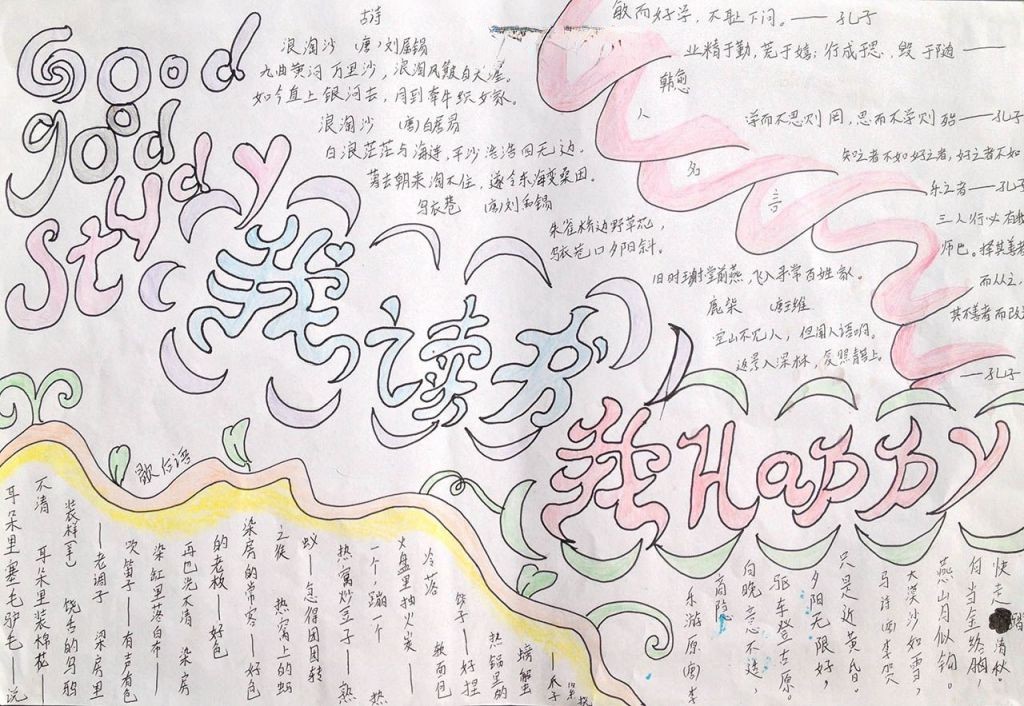 Good
good
study
day
古诗
浪淘沙 (唐) 刘禹锡
九曲黄河万里沙，浪淘风簸自天涯。
如今直上银河去，同到牵牛织女家。
浪淘沙 (唐)白居易
白浪茫茫与海连，平沙浩浩四无边。
暮去朝来淘不住，遂令东海变桑田。
乌衣巷 (唐)刘禹锡
朱雀桥边野草花，
乌衣巷口夕阳斜。
旧时王谢堂前燕，飞入寻常百姓家。
鹿柴 唐王维
空山不见人，但闻人语响。
返景入深林，复照青苔上。
敏而好学，不耻下问。——孔子
业精于勤，荒于嬉；行成于思，毁于随——
韩愈
学而不思则罔，思而不学则殆——孔子
知之者不如好之者，好之者不如
乐之者——孔子
三人行必有我
师也。择其善者
而从之，
其不善者而改之
——孔子
名
人
名
言
我读书
我Happy
歇后语
耳朵里塞毛驴毛——说
不清 耳朵里装棉花——
装样(羊) 饶舌的乌鸦
——老调子 染房里
吹笛子——有声有色
染缸里落白布——
再也洗不清 染房
的老板——好色
染房的常客——好色
之徒 热窝上的蚂
蚁——急得团团转
热窝炒豆子——熟
一个，蹦一个 热
火盘里抽火炭——
冷落 饺子——好捏
软面包
热锅里的
螃蟹
——爪子
快走 清秋。
何当金络脑，
燕山月似钩。
大漠沙如雪，
马诗 (唐)李贺
只是近黄昏。
夕阳无限好，
驱车登古原。
向晚意不适，
商隐
乐游原 (唐) 李